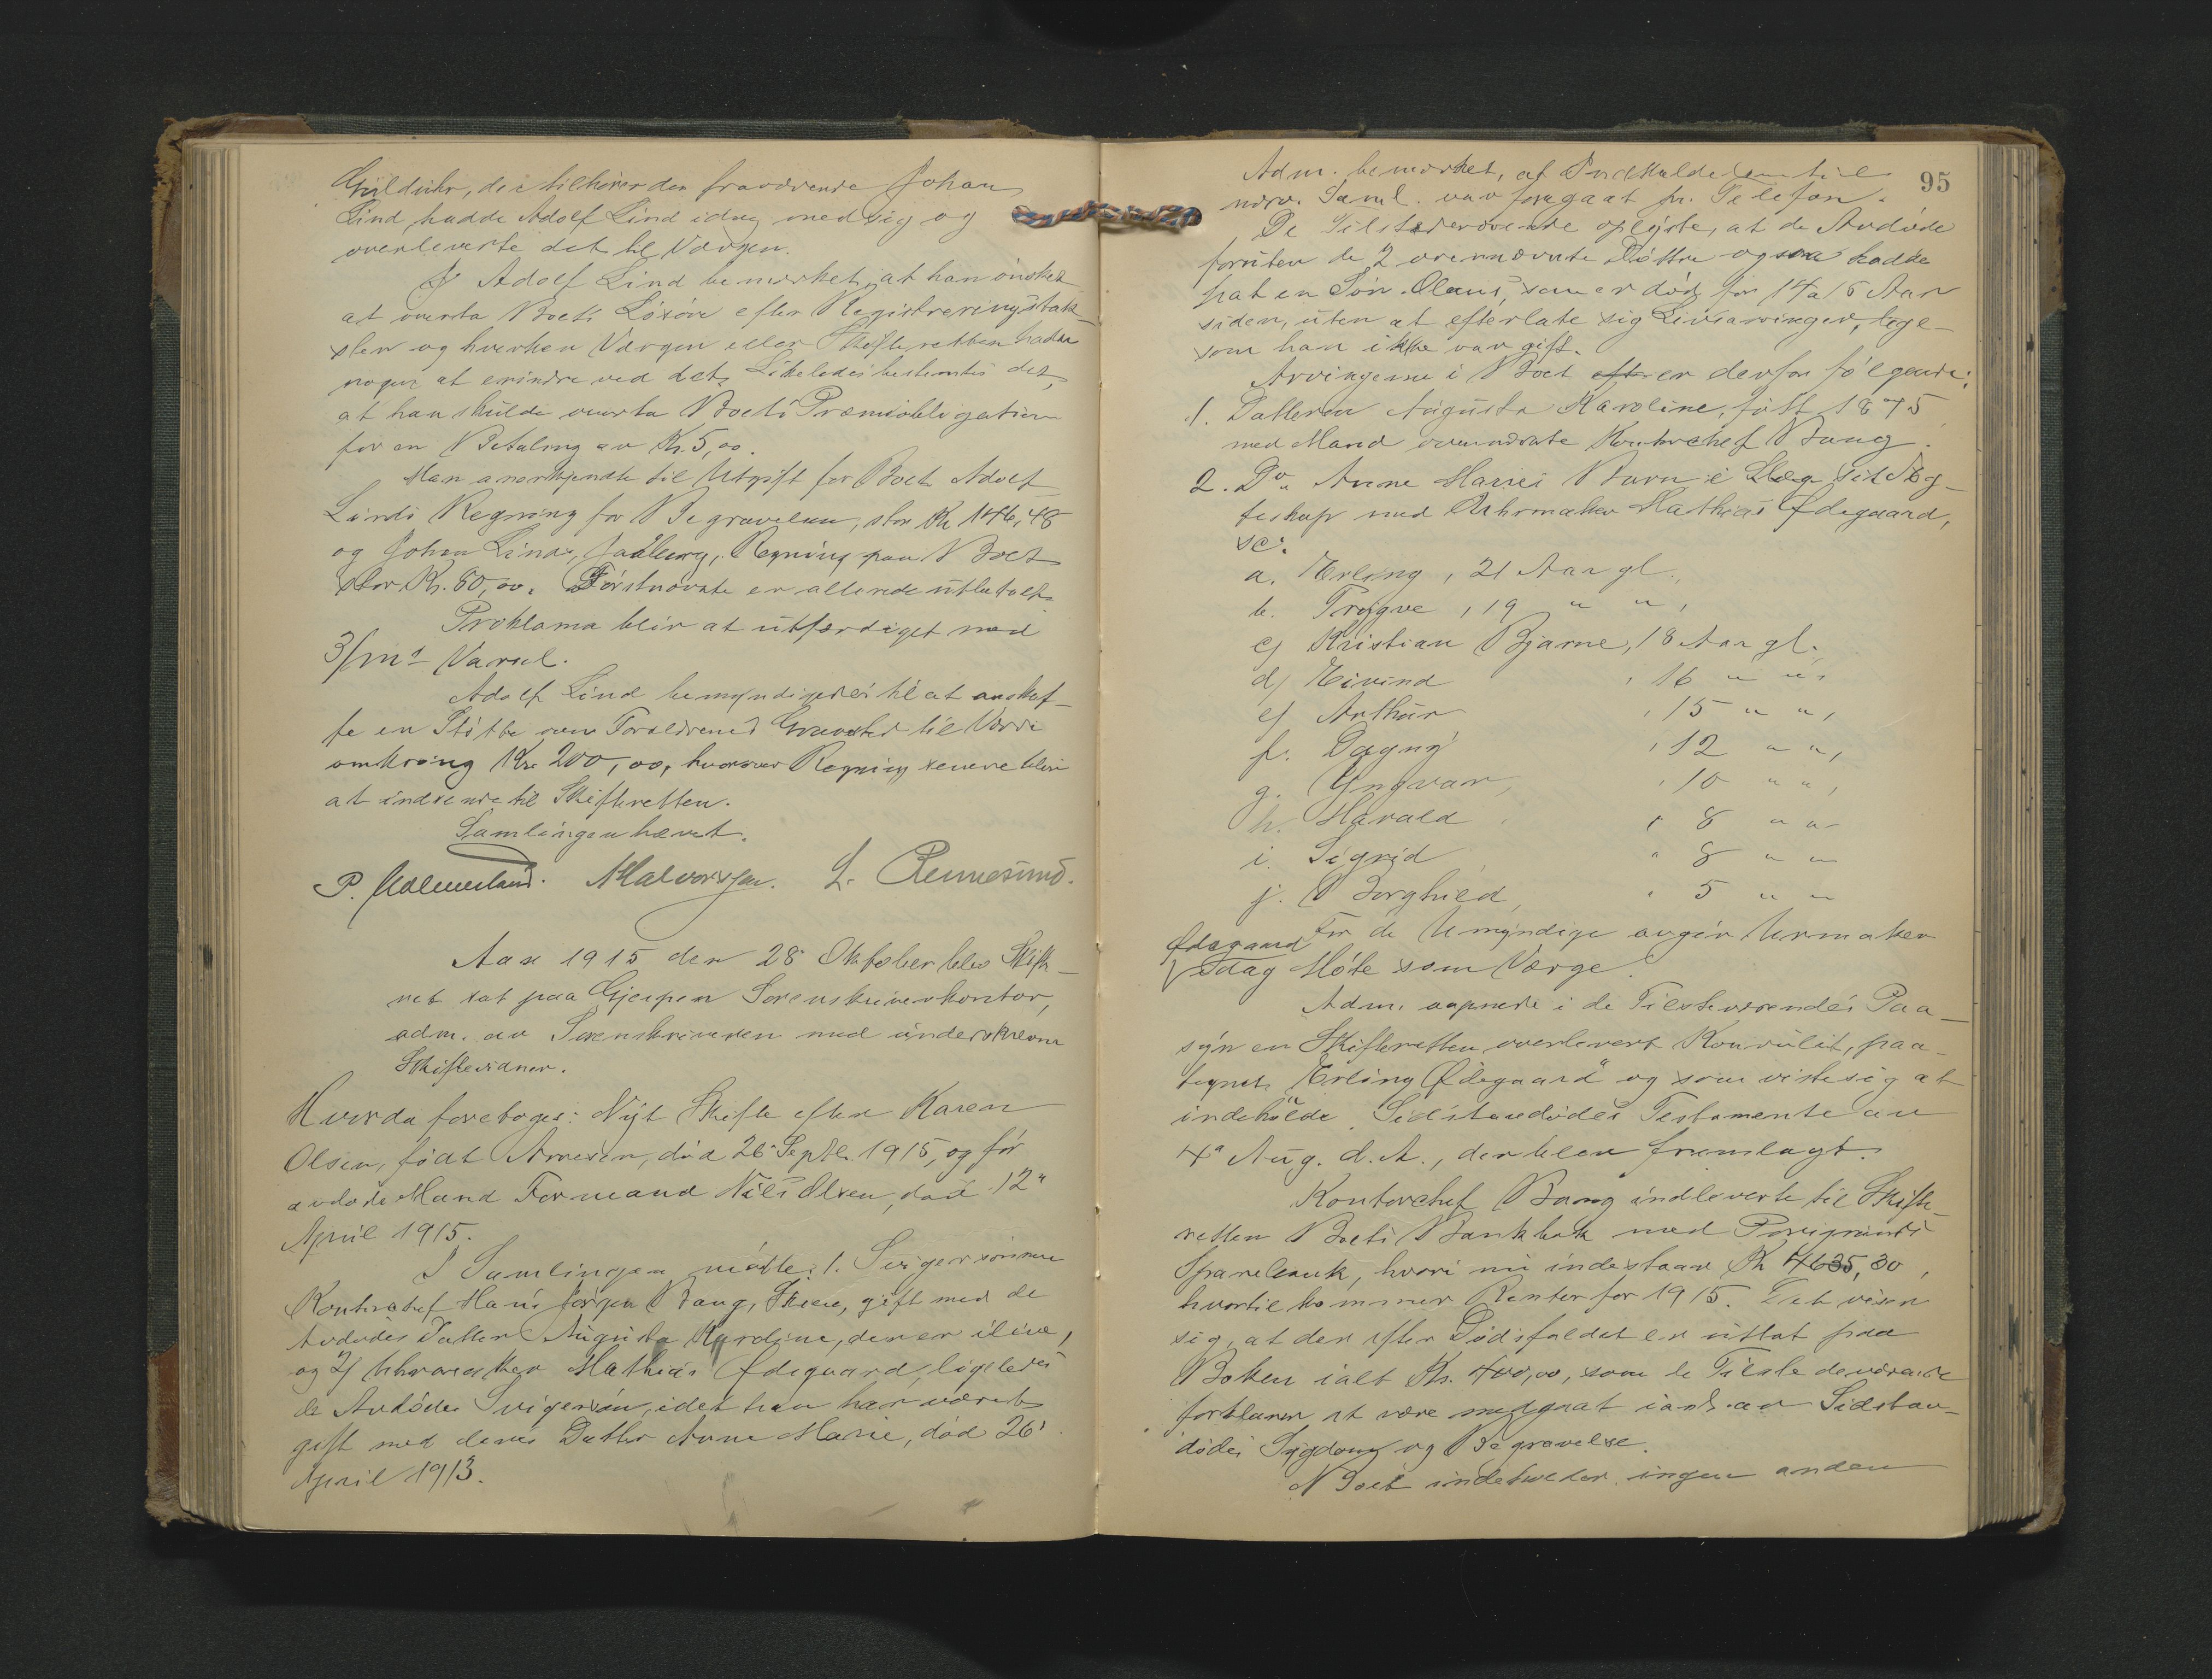 Gulduhr, der tilhører den fraværende Johan
Lind, hadde Adolf Lind idag med sig og
overleverte det til Værgen.
Adolf Lind bemerket, at han ønsket
at overta Boets Løsøre efter Registreringstak-
sten og hverken Værgen eller Skifteretten hadde
noget at erindre ved det. Likeledes bestemtes det,
at han skulde overta Boets Præmieobligation
for en Betaling av Kr. 5,00.
Man anerkjendte til Utgift for Boet Adolf
Linds Regning for Begravelsen, stor Kr 146,48
og Johan Linds, Regning paa Boet
stor Kr. 60,00. Førstnævnte er allerede utbetalt.
Proklama blir at utfærdiget med
3/mds Varsel.
Adolf Lind bemyndigedes til at anskaf-
fe en Støtte paa Forældrenes Gravsted til Værdi
omkring Kr. 200,00, hvorover Regning senere blir
at indsende til Skifteretten.
Samlingen hævet.
P. Halvorsen. L. Rennesund.
Aar 1915 den 28 Oktober blev Skifte-
ret sat paa Gjerpen Sorenskriverkontor,
adm. av Sorenskriveren med underskrevne
Skiftevidner.
Hvorda foretoges: Nyt Skifte efter Karen
Olsen, født Arnesen, død 26 Septbr. 1915, og før
avdøde Mand Formand Nils Olsen, død 12"
April 1915.
I Samlingen møtte: 1. Svigersønnen
Kontorchef Hans Jørgen Bang, Skien, gift med de
Avdødes Datter Augusta Karoline, der er ilive,
og 2/ Uhrmaker Mathias Ødegaard, ligeledes
de Avdødes Svigersøn, idet han har været
gift med deres Datter Anne Marie, død 26'
April 1913.
95
Adm. bemerket, at Indkaldelsen til
nærv. Saml. var foregaat pr. Telefon.
De Tilstedeværende oplyste, at de Avdøde
foruten de 2 ovennævnte Døttre ogsaa hadde
hat en Søn Olaus, som er død for 14 a 15 Aar
siden, uten at efterlate sig Livsarvinger, lige-
som han ikke var gift.
Arvingerne i Boet er derfor følgende:
1. Datteren Augusta Karoline, født 1875
med Mand ovennævnte Kontorchef Bang.
2. Do. Anne Maries Børn i Egteskap Egte-
teskap med Uhrmaker Mathias Ødegaard,
sc.
a. Erling, 21 Aar gl.,
b. Trygve, 19 " ",
c) Kristian Bjarne, 18 Aar gl.,
d) Eivind, 16 " ",
e) Arthur, 15 " ",
f. Dagny, 12 " ",
g. Yngvar, 10 " ",
h. Harald, 8 " "
i. Sigrid " 8 " "
j. Borghild, " 5 " "
For de Umyndige avgir Urmaker
Ødegaard
idag Møte som Værge.
Adm. aapnede i de Tilstedeværendes Paa-
syn en Skifteretten overlevert Konvolut, paa-
tegnet "Erling Ødegaard" og som viste sig at
indeholde Sidstavdødes Testamente av
4" Aug. d. A., der blev fremlagt.
Kontorchef Bang indleverte til Skifte-
retten Boets Bankbok med Porsgrunds
Sparebank, hvori nu indestaar Kr 4635,30,
hvortil kommer Renter for 1915. Det viser
sig, at der efter Dødsfaldet er uttat paa
Boken ialt Kr. 400,00, som de Tilstedeværende
forklarer at være medgaat i anl. av Sidstav-
dødes Sygdom og Begravelse.
Boet indeholder ingen anden